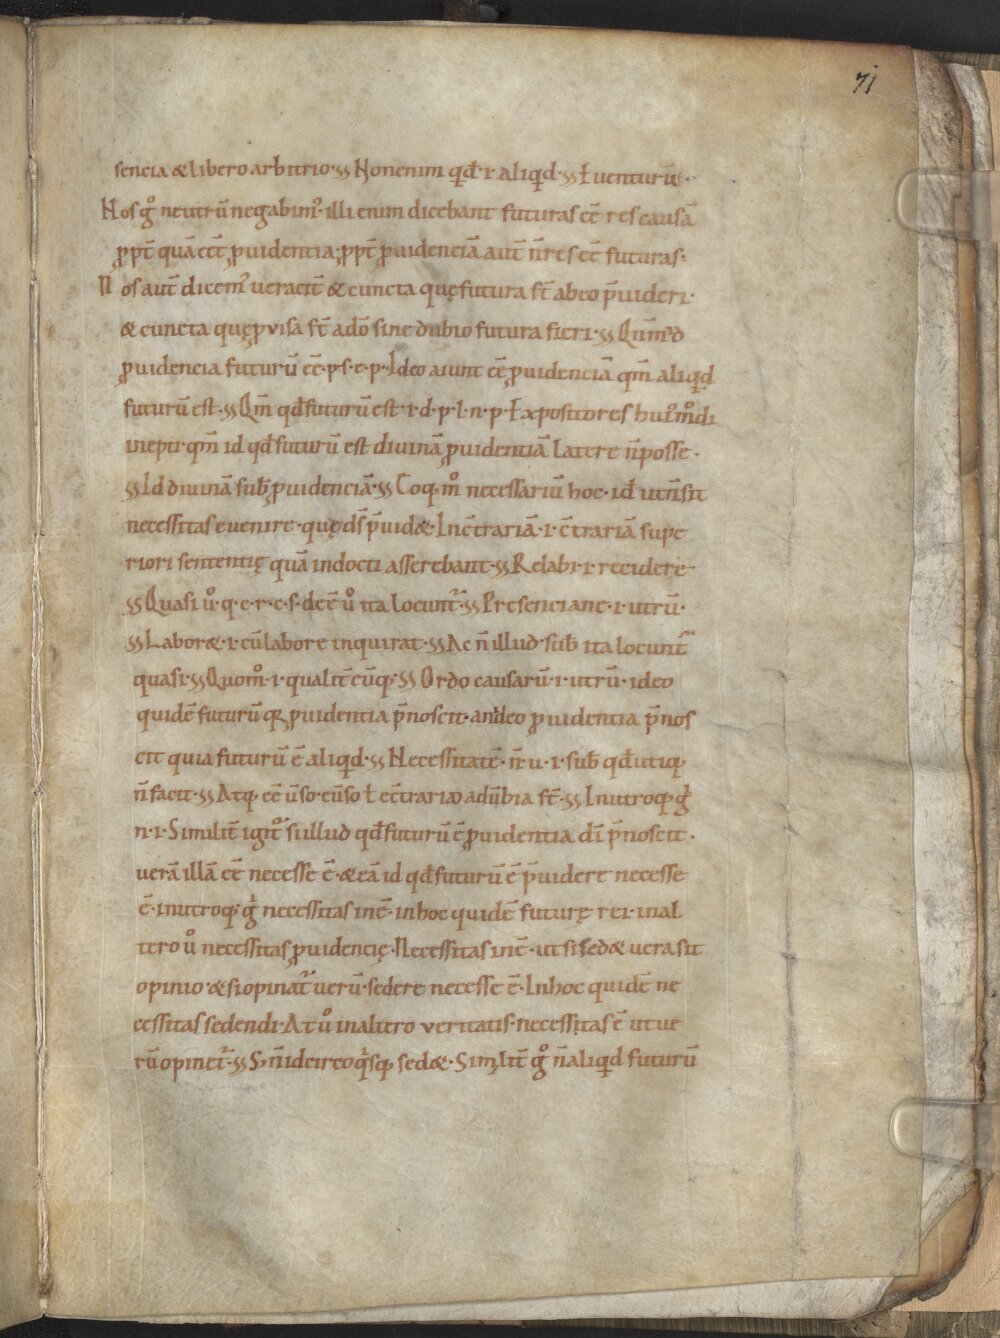 71
sencia & libero arbitrio · Non enim qđ · i · aliqđ · Euenturū ·
Nos gͦ neutrū negabim᷒ · illi enim dicebant futuras eē res causā
ꝓpt̄ quā eēt ꝓuidentia · ꝓpt̄ ꝓuidenciā aut̄ n̄ res eē futuras ·
Nos aut̄ dicem᷒ ueracit̄ & cuncta quę futura st̄ ab eo p̄uideri ·
& cuncta quę puisa st̄ a dō sine dubio futura fieri · Qnm̄
ꝓuidencia futurū eē · p · s · e · p · Ideo aiunt eē ꝓuidenciā qm̄ aliqđ
futurū est · Qm̄ qđ futurū est · i · d · p · l · n · p · Expositores hui᷒modi
inepti · qm̄ id qđ futurū est diuinā ꝓuidentiā latere n̄ posse ·
Id diuinā sub̄ ꝓuidenciā · Eoq; mͦ necessariū hoc · id ut n̄ sit
necessitas euenire · quę ds̄ p̄uid& · In c̄trariā · i · c̄trariā supe
riori sententię quā indocti asserebant · Relabi · i · recidere
Quasi uͦ · q · e · r · c · s · deē uͦ ita locunt᷑ · Presencianc · i · utrū ·
Labor& · i · cū labore inquirat · Ac n̄ illud · sub̄ ita locunt᷑
quasi · Quomͦ · i · qualit̄ cūq; · Ordo causarū · i · utrū · ideo
quidē futurū qꝛ ꝓuidentia p̄noscit · an ideo ꝓuidentia p̄nos
cit quia futurū ē aliqđ · Necessitatē · n̄ · u · i · sub̄ qđ utiq;
n̄ facit · Atq; eē uso · euso ł c̄trario aduˉbia st̄ · In utroq; gͥ
n · i · Similit̄ igit᷑ si illud qđ futurū ē ꝓuidentia dī p̄noscit ·
uerā illā eē necesse ē · & eā id qđ futurū ē p̄uidere necesse
ē · in utroq; gͥ necessitas inē · in hoc quidē futurę rei · in al
tero uͦ necessitas ꝓuidencię · Necessitas inē · ut si sed& uera sit
opinio · & si opinat᷑ uerū · sedere necesse ē · In hoc quidē ne
cessitas sedendi · At uͦ in altero ueritatis · necessitas ē ut ue
rū opinet᷑ · S; n̄ idcirco qͥsq; sed& · Similit̄ gͦ n̄ aliqđ futurū